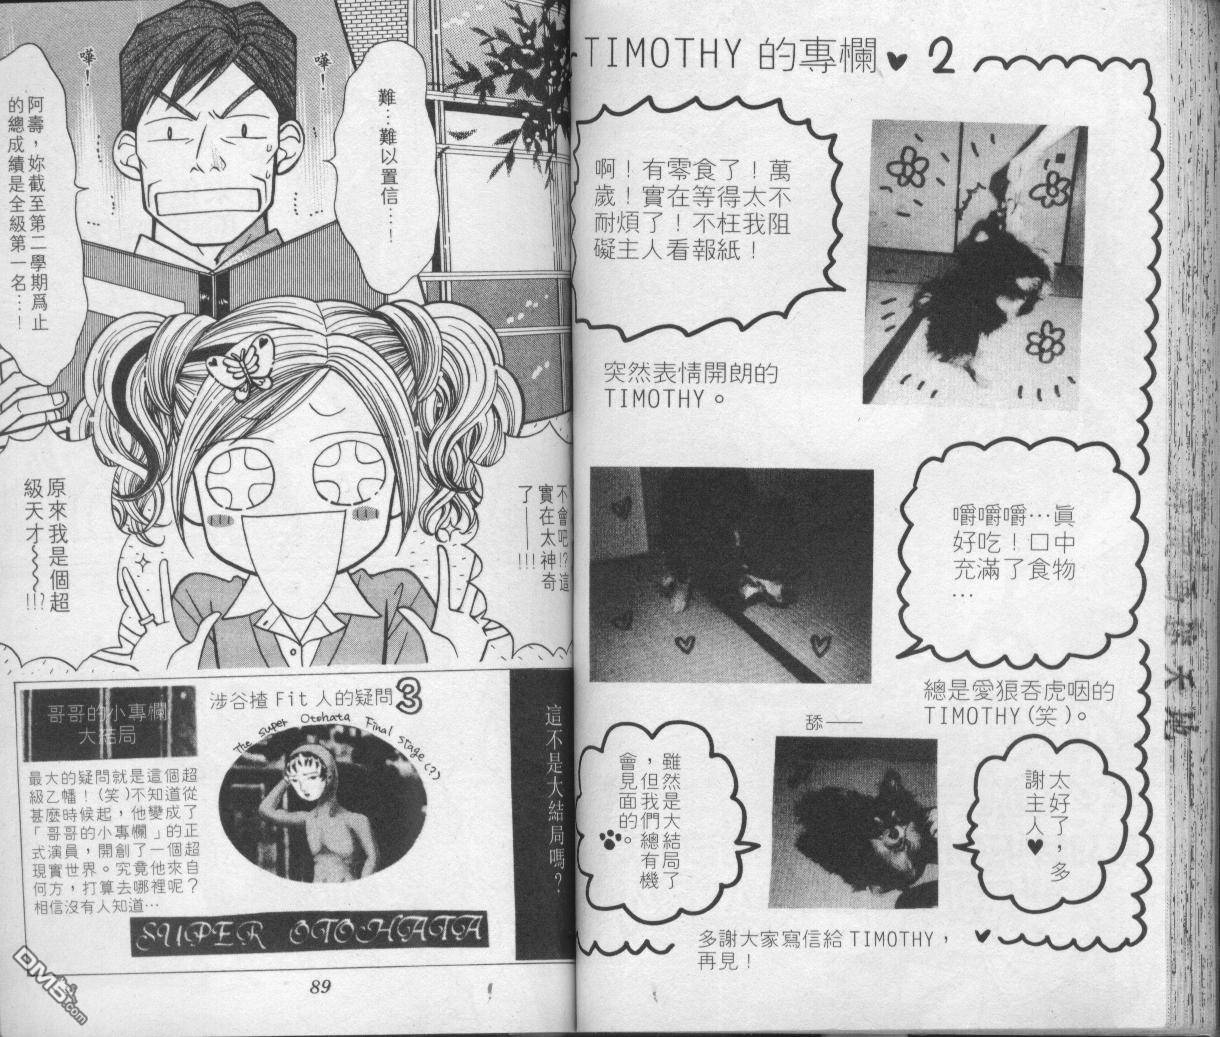 TIMOTHY 的專欄♥2
啊！有零食了！萬
歲！實在等得太不
耐煩了！不枉我阻
礙主人看報紙！
突然表情開朗的
TIMOTHY。
嚼嚼嚼…眞
好吃！口中
充滿了食物
…
總是愛狼吞虎咽的
TIMOTHY(笑)。
舔——
太好了，多
謝主人♥
雖然是大結局了
，但我們總有機
會見面的。
多謝大家寫信給 TIMOTHY，
再見！
難…難以置信…！
嘩！
嘩！
阿壽，妳截至第二學期爲止
的總成績是全級第一名…！
不會吧!?這
實在太神奇
了——!!!
原來我是個超
級天才~~~~!!?
這不是大結局嗎？
涉谷揸 Fit 人的疑問3
哥哥的小專欄
大結局
The Super Otohata Final Stage(?)
最大的疑問就是這個超
級乙幡！(笑)不知道從
甚麼時候起，他變成了
「哥哥的小專欄」的正
式演員，開創了一個超
現實世界。究竟他來自
何方，打算去哪裡呢？
相信沒有人知道…
SUPER OTOHATA
89
DM5.com